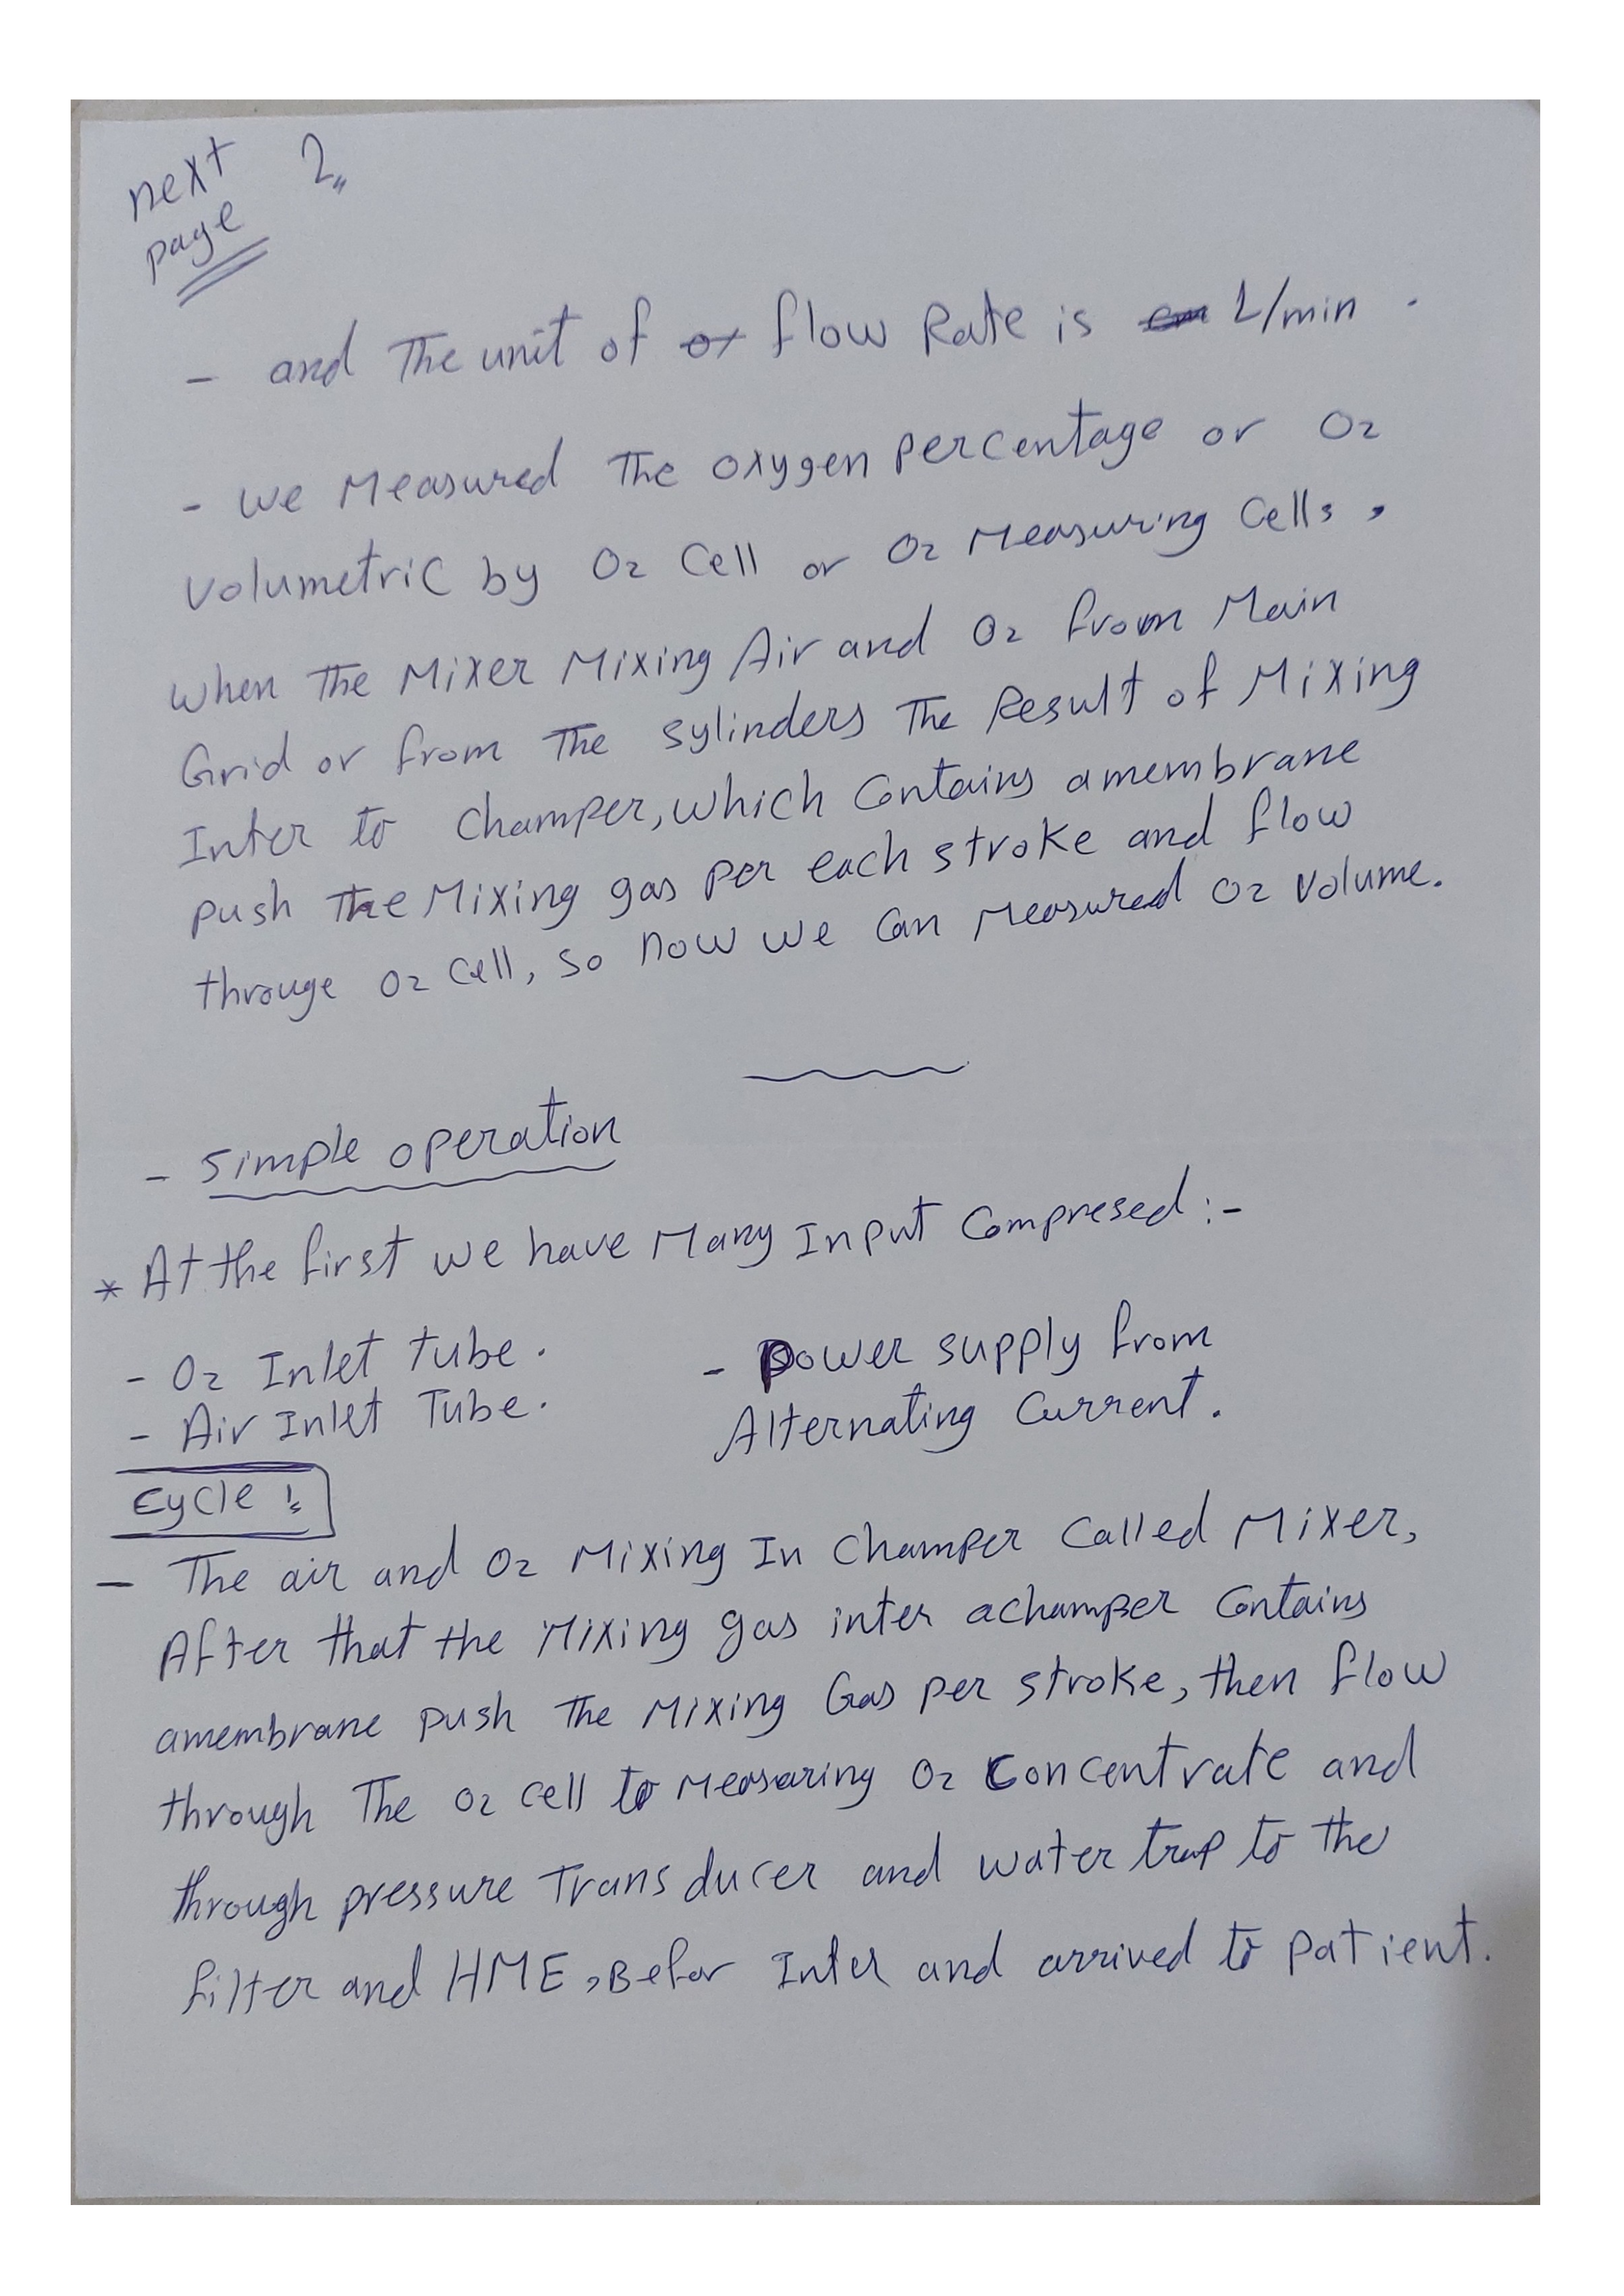 next 2
page
- and The unit of flow Rate is L/min .
- we Measured The oxygen percentage or O2
volumetric by O2 Cell or O2 Measuring Cells ,
when The Mixer Mixing Air and O2 from Main
Grid or from The sylinders The Result of Mixing
Inter to Champer, which Contains amembrane
push The Mixing gas per each stroke and flow
througe O2 Cell, so now we Can Measured O2 volume.
- Simple operation
* At the first we have Many Input Compresed :-
- O2 Inlet tube .
- Air Inlet Tube .
- Power supply from
Alternating Current .
Cycle :
- The air and O2 Mixing In Champer Called Mixer,
After that the Mixing gas inter achamper Contains
amembrane push The Mixing Gas per stroke, then flow
through The O2 cell to Measuring O2 Concentrate and
through pressure Transducer and water trap to the
filter and HME, Befor Inter and arrived to patient.